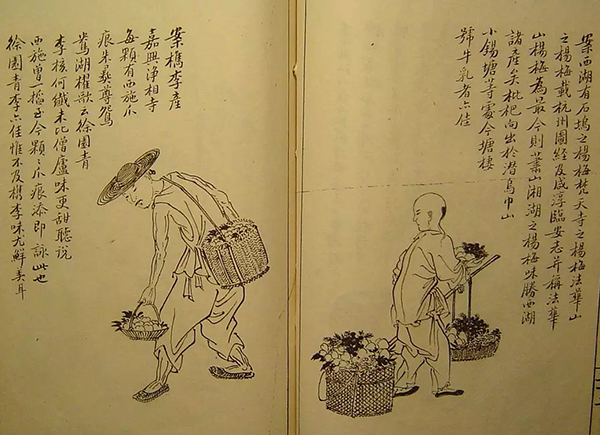 案西湖有石塢之楊梅梵天寺之楊梅法華山
之楊梅載杭州圖經及咸淳臨安志并稱法華
山楊梅為最今則蕭山湘湖之楊梅味勝西湖
諸產矣枇杷向出於潛烏巾山
小錫塘等處今塘棲
號牛乳者亦佳
案檇李產
嘉興淨相寺
每顆有西施爪
痕朱彝尊鴛
鴦湖櫂歌云徐園青
李核何纖未比僧廬味更甜聽說
西施曾一搯至今顆顆爪痕添即詠此也
徐園青李亦佳惟不及檇李味尤鮮美耳